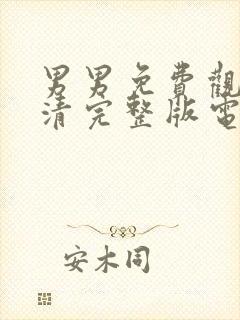 男男免費觀
清完整版電
安木同